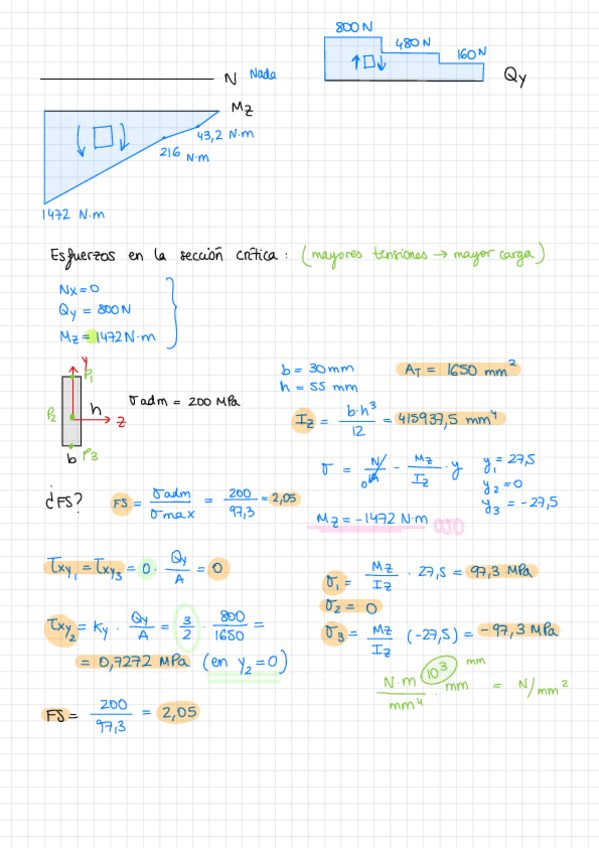 800 N
480 N
160 N
N Nada
Qy
Mz
43,2 N·m
216 N·m
1472 N·m
Esfuerzos en la sección crítica: (mayores tensiones → mayor carga)
Nx = 0
Qy = 800 N
Mz = 1472 N·m
y
P1
P2
h
z
b P3
σadm = 200 MPa
b = 30 mm
h = 55 mm
AT = 1650 mm²
Iz = b·h³/12 = 415937,5 mm⁴
σ = N/A - Mz/Iz · y
0
y1 = 27,5
y2 = 0
y3 = -27,5
¿FS? FS = σadm/σmax = 200/97,3 = 2,05
Mz = -1472 N·m OJO
τxy1 = τxy3 = 0 · Qy/A = 0
σ1 = Mz/Iz · 27,5 = 97,3 MPa
σ2 = 0
τxy2 = Ky · Qy/A = 3/2 · 800/1650 =
= 0,7272 MPa (en y2 = 0)
σ3 = Mz/Iz (-27,5) = -97,3 MPa
N·m/mm⁴ · 10³ mm mm = N/mm²
FS = 200/97,3 = 2,05